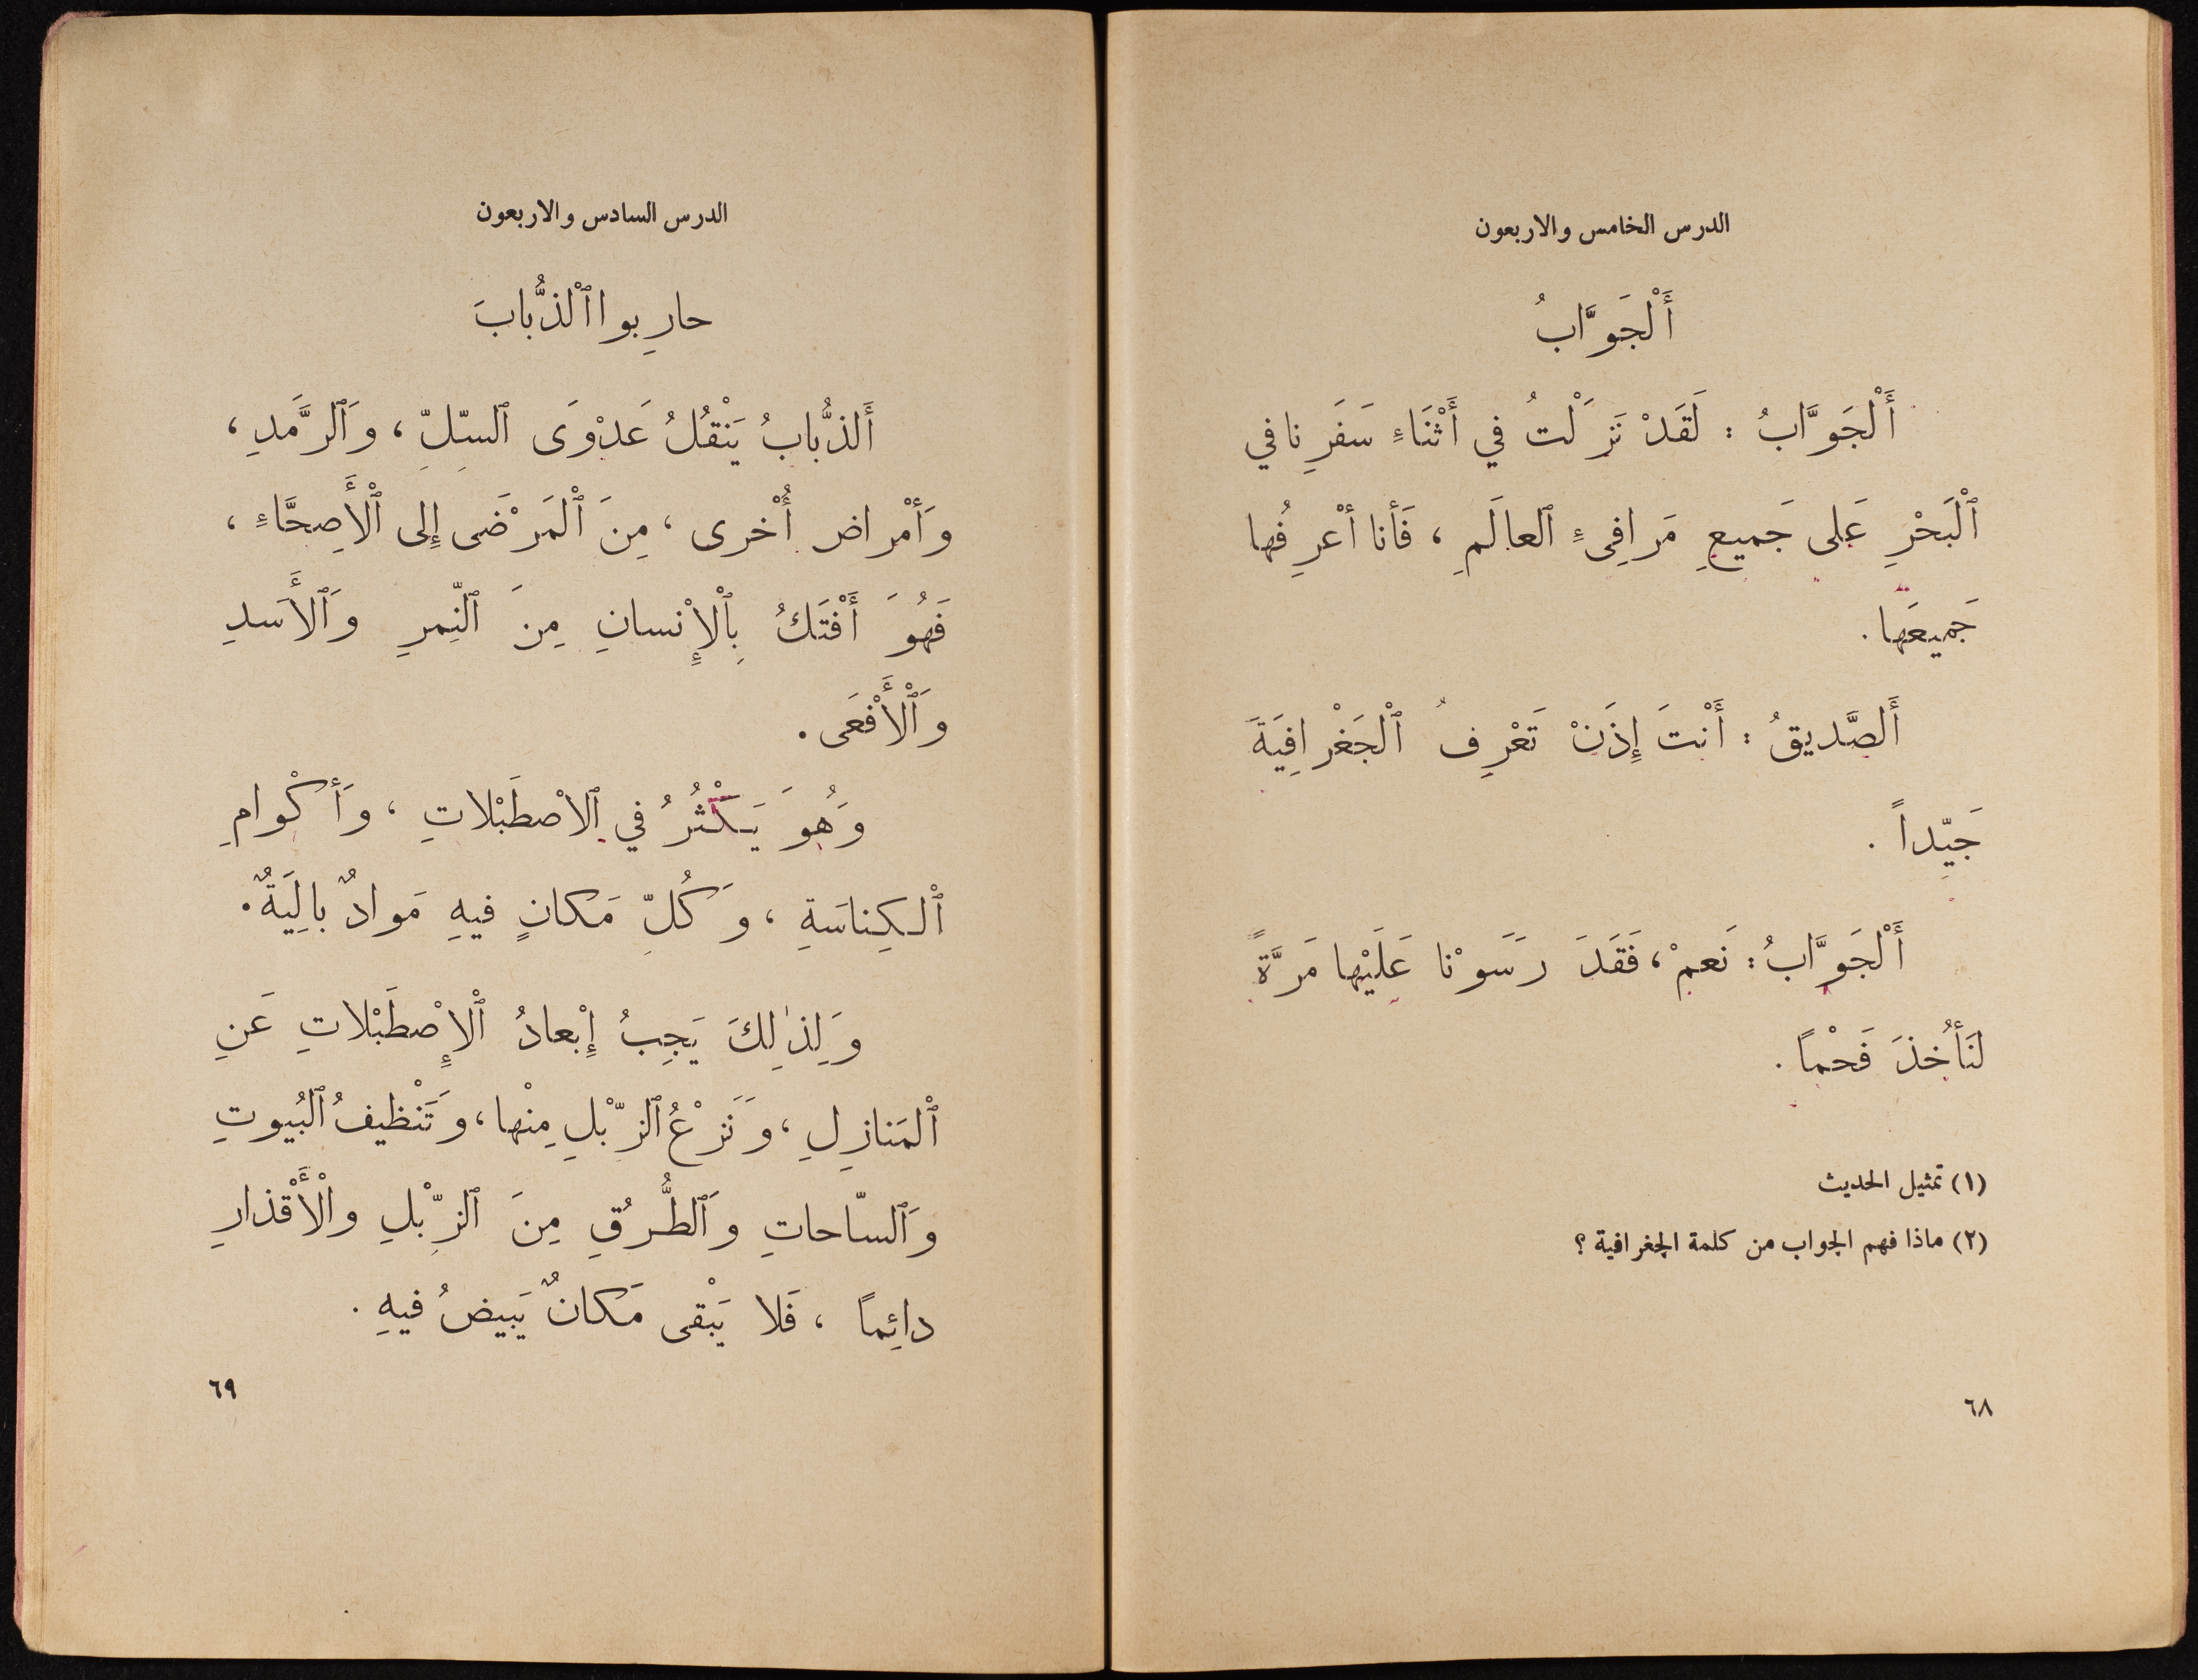 الدرس الخامس والاربعون
أَلْجَوَّابُ
أَلْجَوَّابُ : لَقَدْ نَزَلْتُ في أَثْنَاءِ سَفَرِنا في
ٱلْبَحْرِ عَلى جَميعِ مَرافِىءِ ٱلعالَمِ ، فَأنا أعْرِفُها
جَميعَها .
أَلصَّديقُ : أَنْتَ إِذَنْ تَعْرِفُ ٱلْجَغْرافِيَةَ
جَيِّداً .
أَلْجَوَّابُ : نَعمْ ، فَقَدَ رَسَوْنا عَلَيْها مَرَّةً
لنَأخُذَ فَحْماً .
(١) تمثيل الحديث
(٢) ماذا فهم الجواب من كلمة الجغرافية ؟
٦٨
الدرس السادس والاربعون
حارِبوا ٱلْذُّبابَ
أَلذُّبابُ يَنْقُلُ عَدْوَى ٱلسِّلِّ ، وَٱلرَّمَدِ ،
وَأَمْراض أُخْرى ، مِنَ ٱلْمَرْضَى إِلى ٱلْأَصِحَّاءِ ،
فَهُوَ أَفْتَكُ بِٱلْإِنْسانِ مِنَ ٱلنِّمرِ وَٱلأَسَدِ
وَٱلْأَفْعَى .
وَهُوَ يَكْثُرُ في ٱلاصْطَبْلاتِ ، وَأكْوامِ
ٱلْكِناسَةِ ، وَكُلِّ مَكانٍ فيهِ مَوادٌ بالِيَةٌ .
وَلِذٰلِكَ يَجِبُ إِبْعادُ ٱلْإِصْطَبْلاتِ عَنِ
ٱلْمَنازِلِ ، وَنَزْعُ ٱلزِّبْلِ مِنْها ، وَتَنْظيفُ ٱلبُيوتِ
وَٱلسّاحاتِ وَٱلطُّرُقِ مِنَ ٱلزِّبْلِ وٱلْأَقْذارِ
دائِماً ، فَلا يَبْقى مَكانٌ يَبيضُ فيهِ .
٦٩